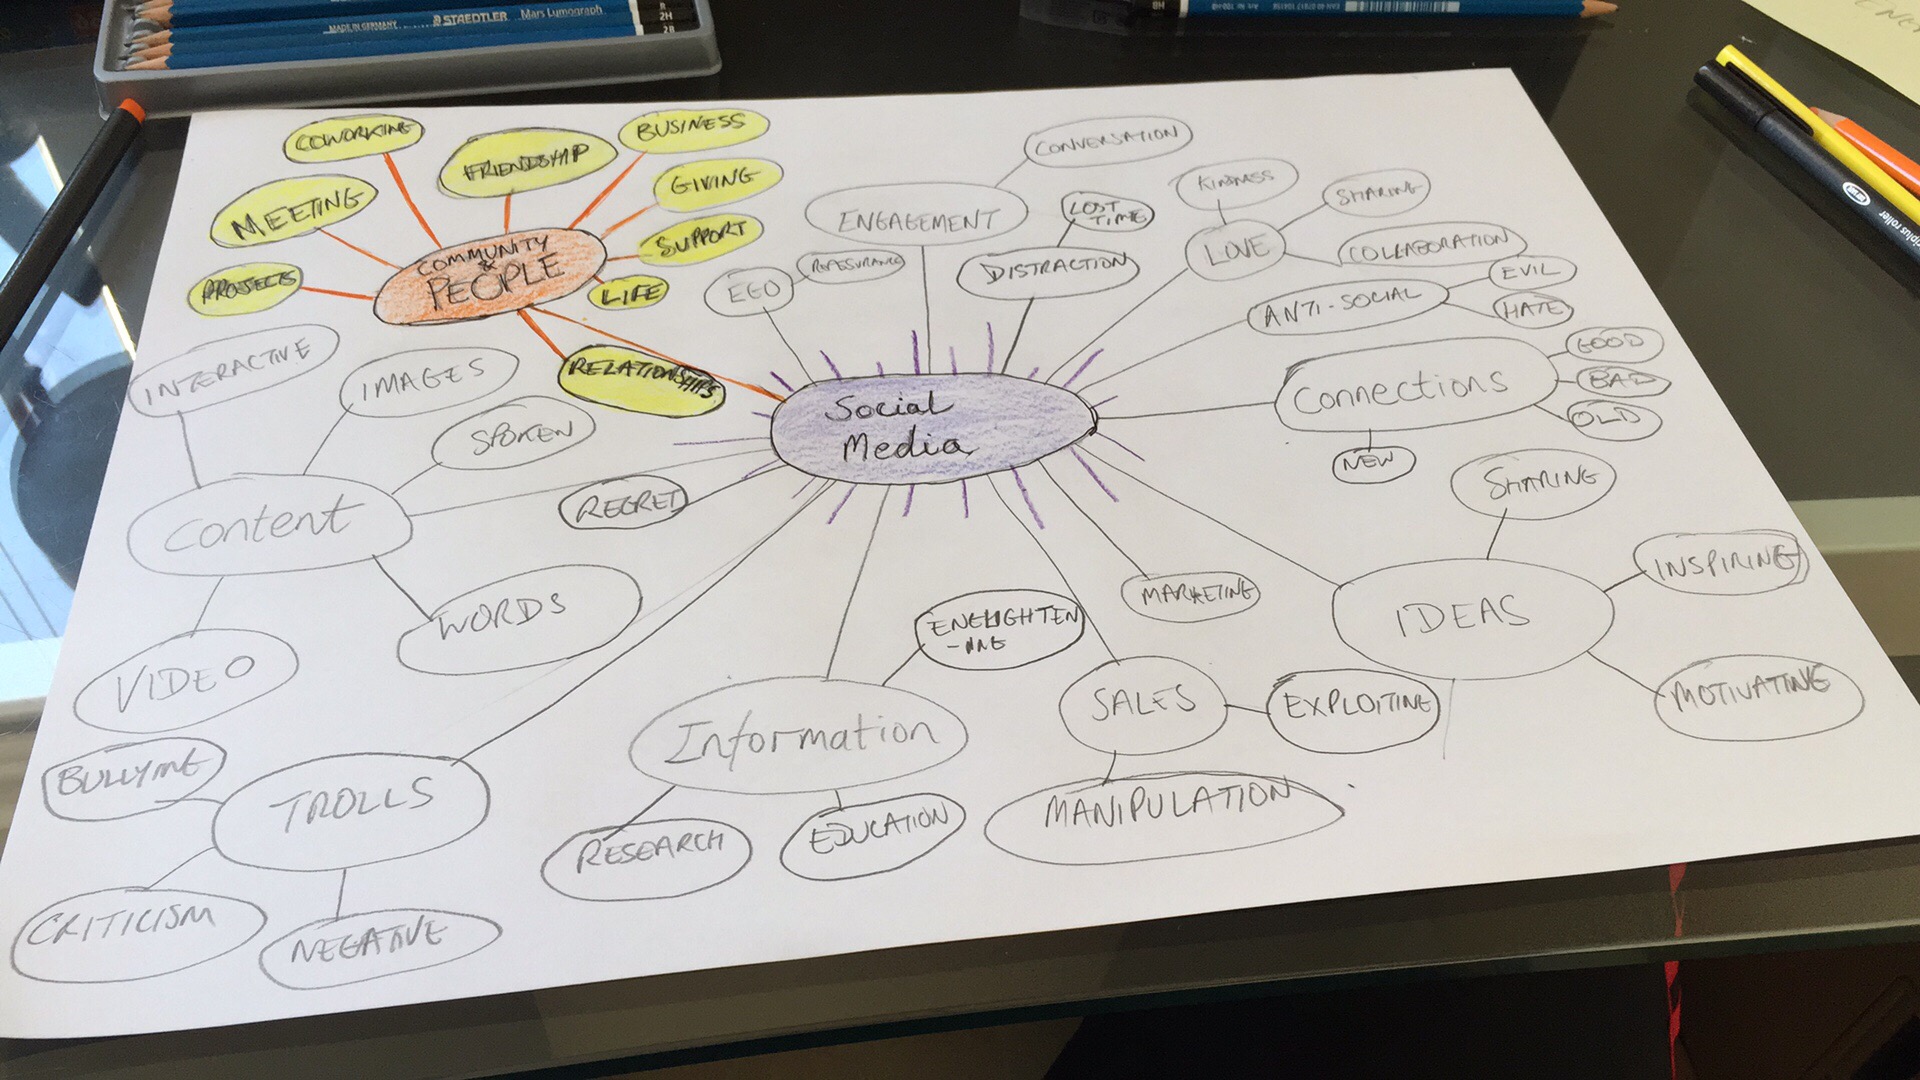 MADE IN GERMANY
STAEDTLER
Mars Lumograph
2H
2B
8H
COWORKING
FRIENDSHIP
BUSINESS
MEETING
GIVING
SUPPORT
PROJECTS
COMMUNITY
&
PEOPLE
LIFE
RELATIONSHIPS
CONVERSATION
ENGAGEMENT
LOST
TIME
KINDNESS
SHARING
LOVE
COLLABORATION
EGO
DISTRACTION
ANTI-SOCIAL
EVIL
HATE
INTERACTIVE
IMAGES
SPOKEN
Social
Media
Connections
GOOD
BAD
OLD
NEW
Content
REGRET
SHARING
WORDS
VIDEO
MARKETING
IDEAS
INSPIRING
MOTIVATING
ENELIGHTEN
-ING
Information
SALES
EXPLOITING
MANIPULATION
BULLYING
TROLLS
RESEARCH
EDUCATION
CRITICISM
NEGATIVE